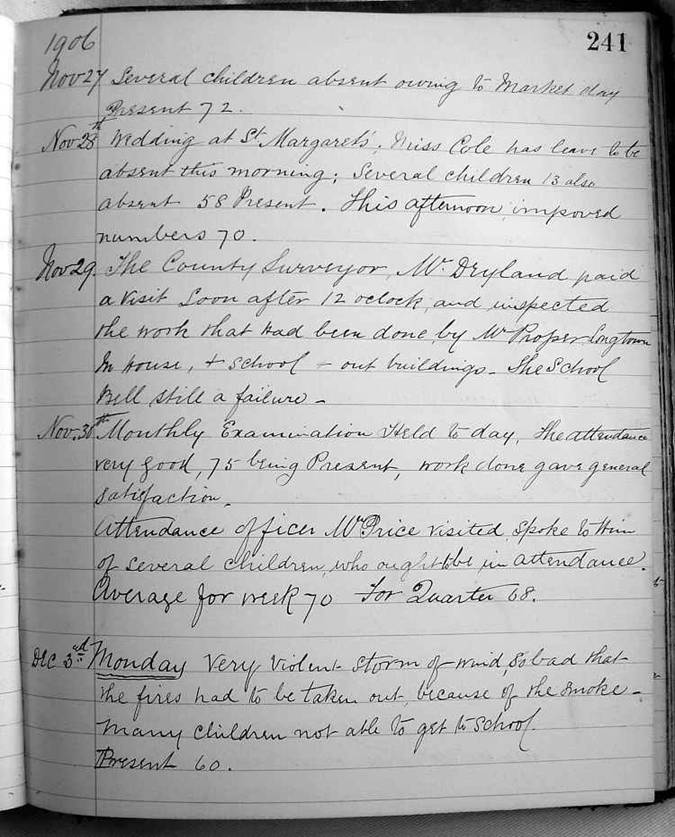 1906
241
Nov 27 Several children absent owing to Market day
Present 72.
Nov 28th Wedding at St Margarets', Miss Cole has leave to be
absent this morning; Several children 13 also
absent 58 Present. This afternoon impoved
numbers 70.
Nov 29. The County Surveyor, Mr Dryland paid
a visit soon after 12 oclock, and inspected
the work that Had been done by Mr Prosser Longtown
In House, + School + out buildings - The School
Bell still a failure -
Nov. 30th Monthly Examination Held to day, the attendance
very good, 75 being Present, work done gave general
satisfaction.
Attendance officer Mr Price visited, spoke to Him
of several children, who ought to be in attendance.
Average for week 70 For Quarter 68.
Dec 3rd: Monday Very Violent storm of wind, so bad that
the fires had to be taken out, because of the smoke -
Many children not able to get to school.
Present 60.